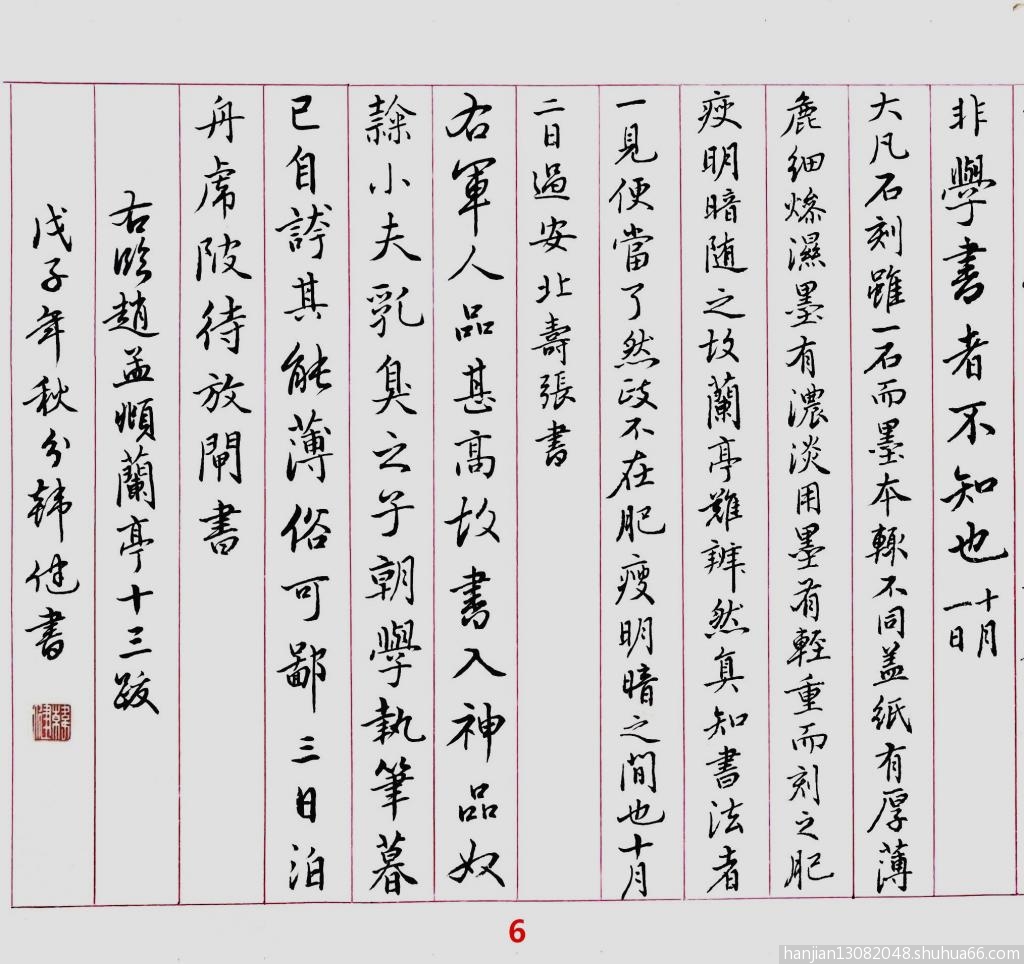 非學書者不知也十月
一日
大凡石刻雖一石而墨本輒不同盖紙有厚薄
麁細燥濕墨有濃淡用墨有輕重而刻之肥
瘦明暗随之故蘭亭難辨然真知書法者
一見便當了然政不在肥瘦明暗之間也十月
二日過安北壽張書
右軍人品甚高故書入神品奴
隸小夫乳臭之子朝學執筆暮
已自誇其能薄俗可鄙三日泊
舟虎陂待放閘書
右臨趙孟頫蘭亭十三跋
戊子年秋分韩健書
6
hanjian13082048.shuhua66.com